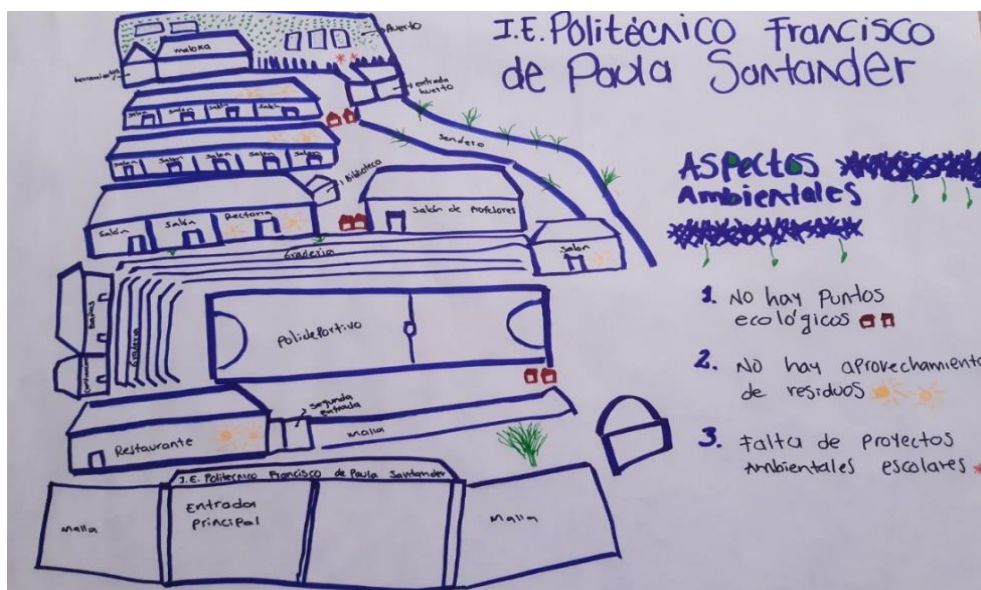 I.E. Politécnico Francisco
de Paula Santander
Huerto
maloka
herramientas
entrada
huerto
Salón Salón Salón Salón
Sendero
Salón Salón Salón Salón Salón
Biblioteca
Salón Salón Rectoria
Salón de Profesores
Salón
Graderia
Baños
Graderia
Polideportivo
segunda
entrada
malla
Restaurante
I.E. Politecnico Francisco de Paula Santander
malla
Entrada
principal
Malla
Aspectos
Ambientales
1. No hay Puntos
ecológicos
2. No hay aprovechamiento
de residuos
3. Falta de Proyectos
Ambientales escolares